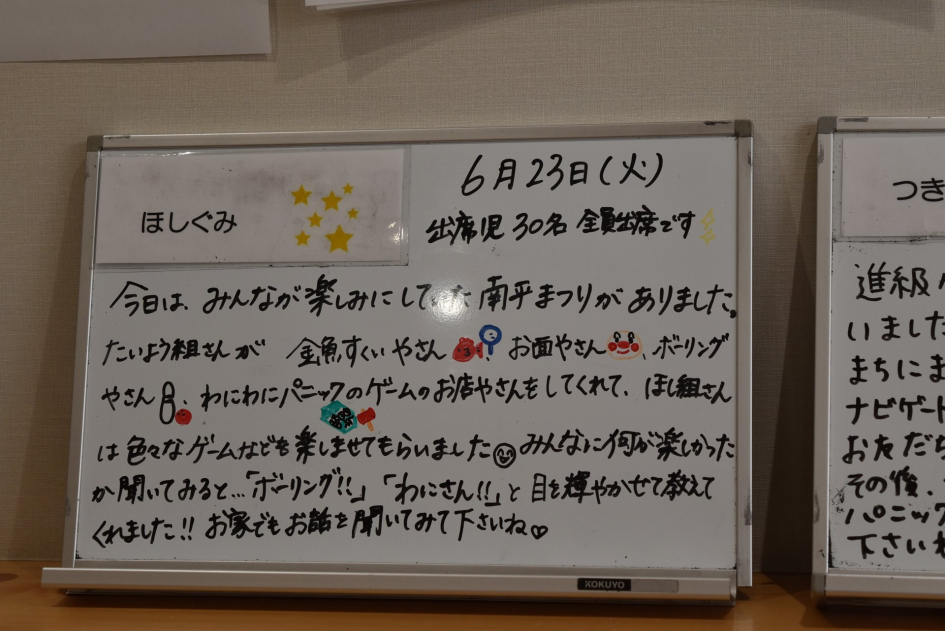 ほしぐみ
6月23日(火)
出席児 30名 全員出席です
今日は、みんなが楽しみにして た 南平まつりが ありました。
たいよう組さんが 金魚すくいやさん 、お面やさん 、ボーリング
やさん 、わにわにパニックのゲームのお店やさんをしてくれて、ほし組さん
は色々なゲームなどを楽しませてもらいました みんなに何が楽しかった
か聞いてみると…「ボーリング!!」「わにさん!!」と目を輝やかせて教えて
くれました!! お家でもお話を聞いてみて下さいね♡
KOKUYO
つき
進級
いました
まちにま
ナビゲート
おともだち
その後、
パニック
下さいね